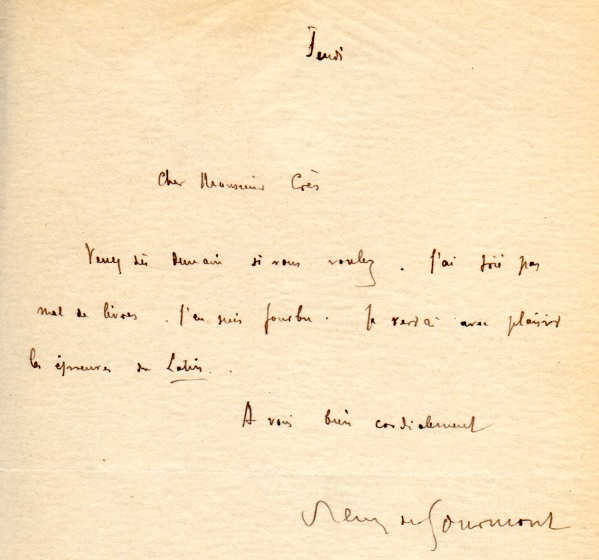 Jeudi
Cher Monsieur Crès
Venez dès demain si vous voulez. J'ai trié pas
mal de livres. J'en suis fourbu. Je verrai avec plaisir
les épreuves du Latin.
A vous bien cordialement
Remy de Gourmont